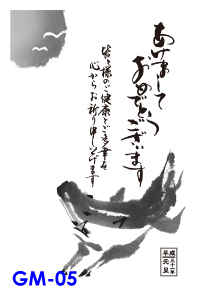 あけまして
おめでとう
ございます
皆々様のご健康とご多幸を
心からお祈り申し上げます
平成三十一年
元旦
GM-05